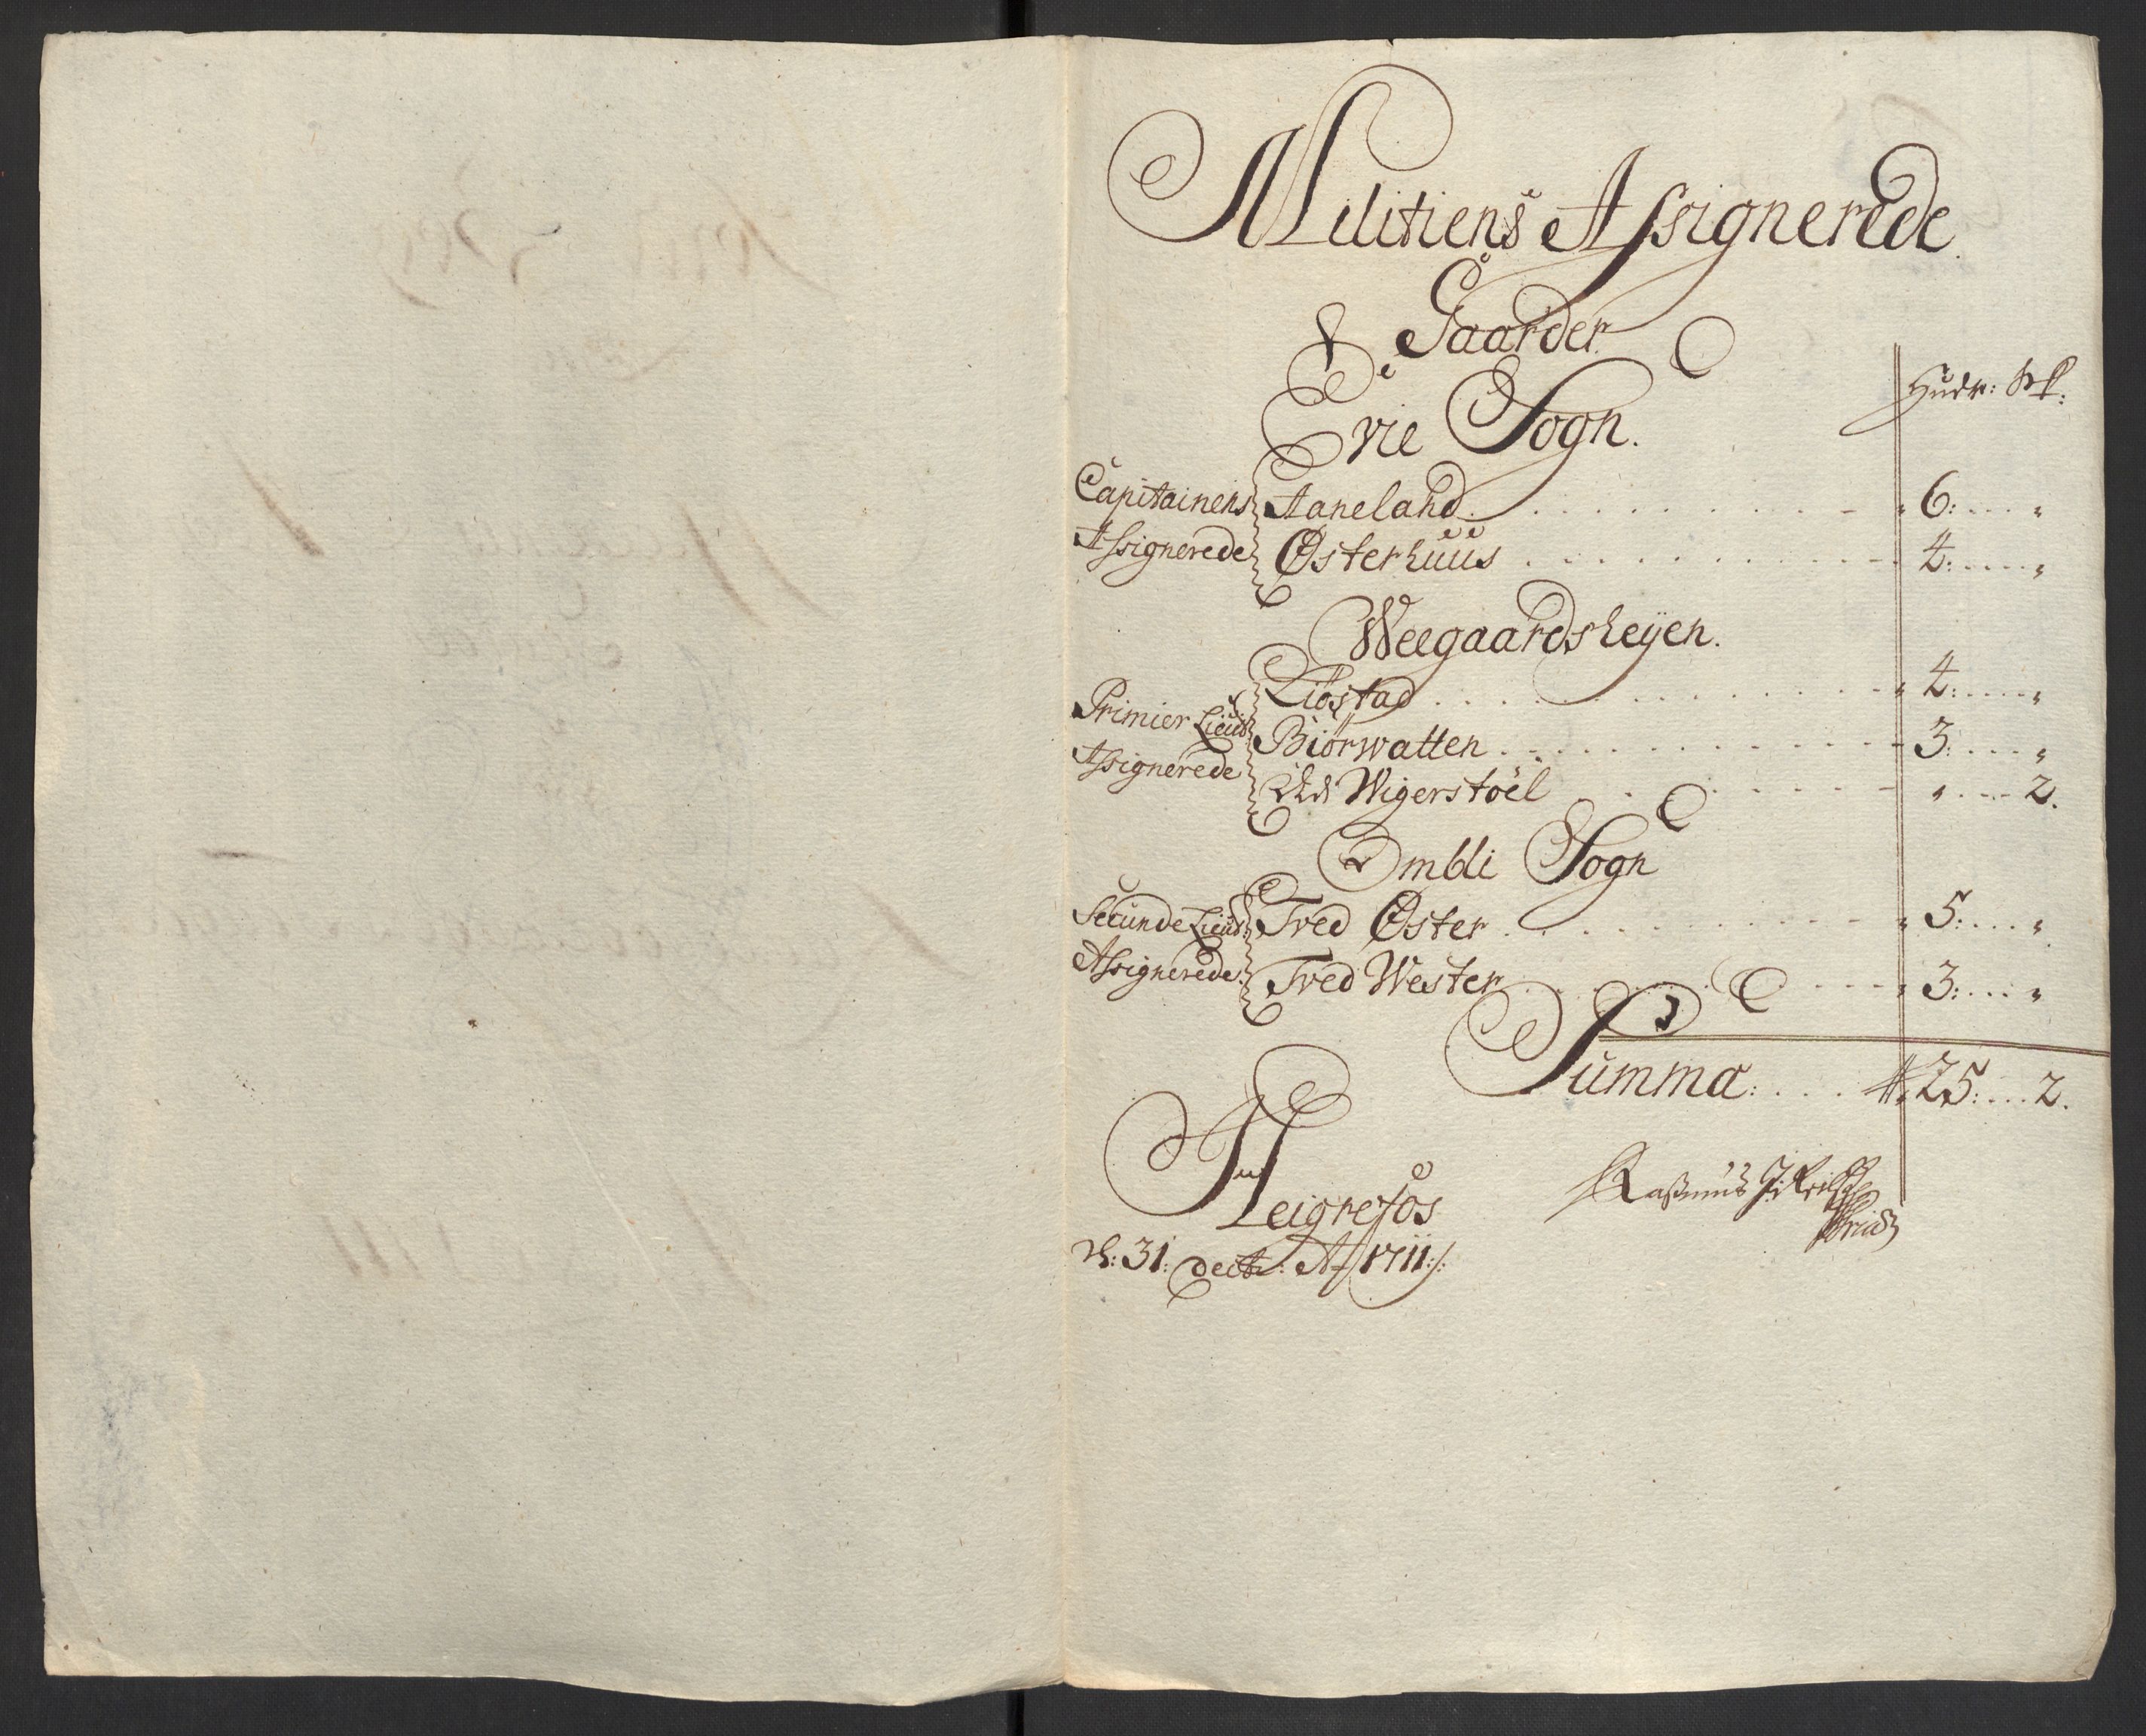 Militiens Assignerede
Gaarder
Hudr: Sk:
Evie Sogn.
Capitainens Aaneland . . . . . . . . . 6: . . . "
Assignerede Østerhuus . . . . . . . . . 4: . . . . "
Weegaardsheyen.
Liøstad . . . . . . . . . 4: . . . . "
Primier Lieut: Biørwatten . . . . . . . . . 3: . . . "
Assignerede Wigerstøel . . . . . . " . . . 2.
Ombli Sogn
Secunde Lieut: Tved Øster . . . . . . . . . 5: . . . "
Assignerede: Tved Wester . . . . . . . . . 3: . . . "
Summa: . . . 25: . . . 2.
Heigrefos
d: 31: decbr: Ao 1711 ./.
Rasmus